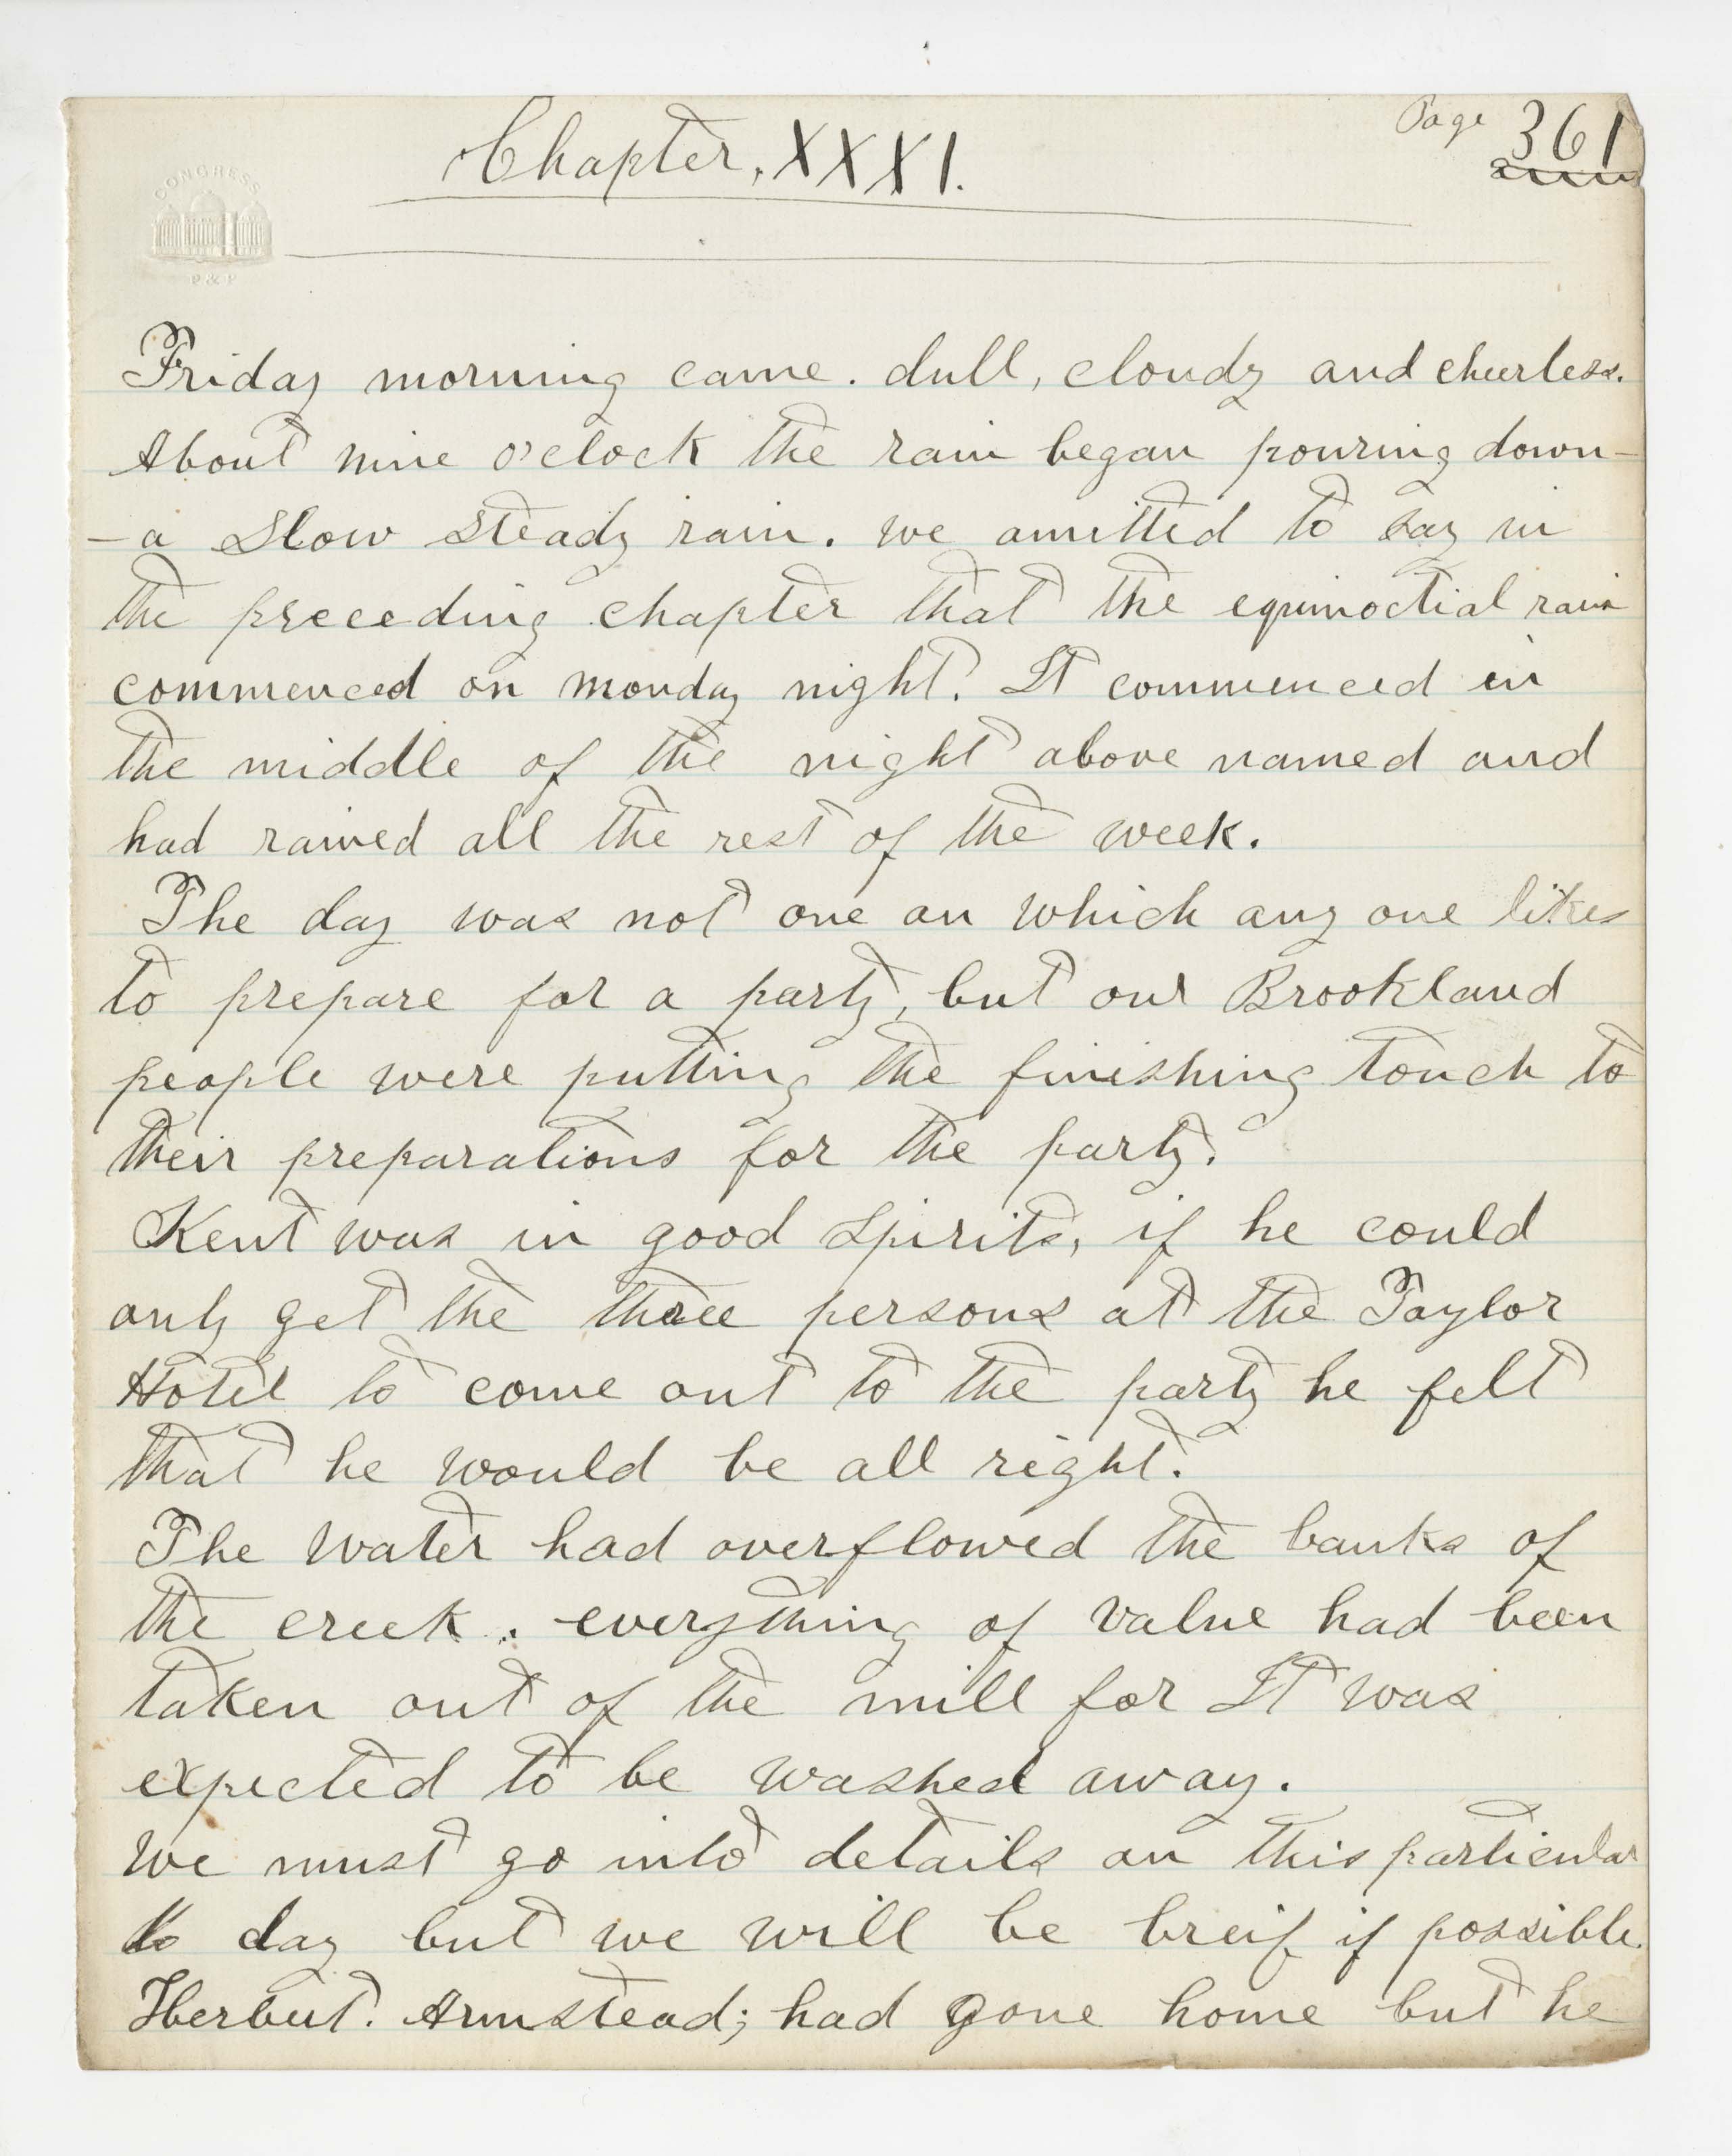 Page 361
Chapter, XXXI.
CONGRESS
P & P
Friday morning came. dull, cloudy and cheerless.
About nine o'clock the rain began pouring down-
- a slow steady rain. we omitted to say in
the preceeding chapter that the equinoctial rain
commenced on monday night. It commenced in
the middle of the night above named and
had rained all the rest of the week.
The day was not one on which any one likes
to prepare for a party, but our Brookland
people were putting the finishing touch to
their preparations for the party.
Kent was in good spirits, if he could
only get the three persons at the Taylor
Hotel to come out to the party he felt
that he would be all right.
The water had overflowed the banks of
the creek. everything of value had been
taken out of the mill for It was
expected to be washed away.
We must go into details on this particular
day but we will be breif if possible.
Herbert. Armstead; had gone home but he